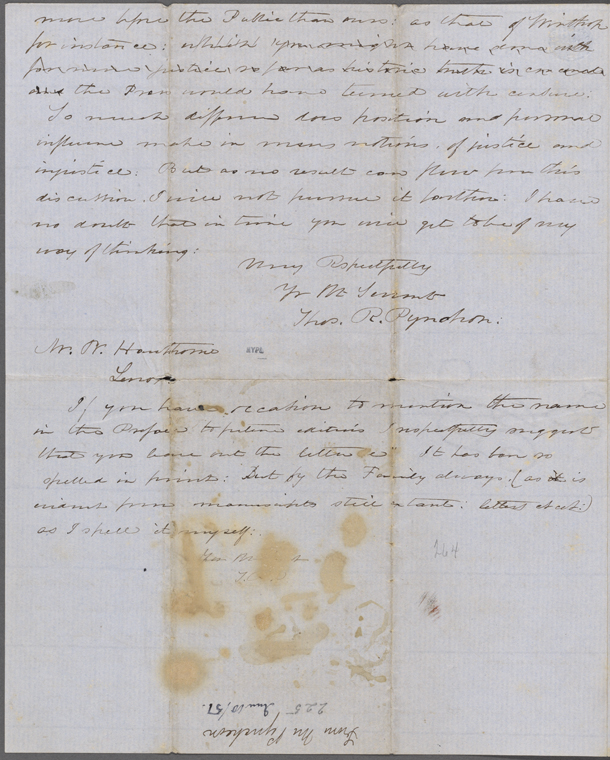 more before the Public than ours: as that of Winthrop
for instance: which you might have done with
far more justice so far as historic truth is
the Press would have teemed with censure:
So much difference does position and personal
influence make in mens notions of justice and
injustice: But as no result can flow from this
discussion I will not pursue it farther: I have
no doubt that in time you will get to be of my
way of thinking:
Very Respectfully
Yr Mt Servnt
Thos. R. Pynchon.
Mr. N. Hawthorne
NYPL
Lenox
If you have occation to mention the name
in the Preface to future editions I respectfully suggest
that you leave out the letter "e" It has been so
spelled in print: But by the Family always: (as it is
evident from manuscripts still extant: letters et cet:)
as I spell it myself:
264
225 Jun 10/51.
From Mr Pyncheon